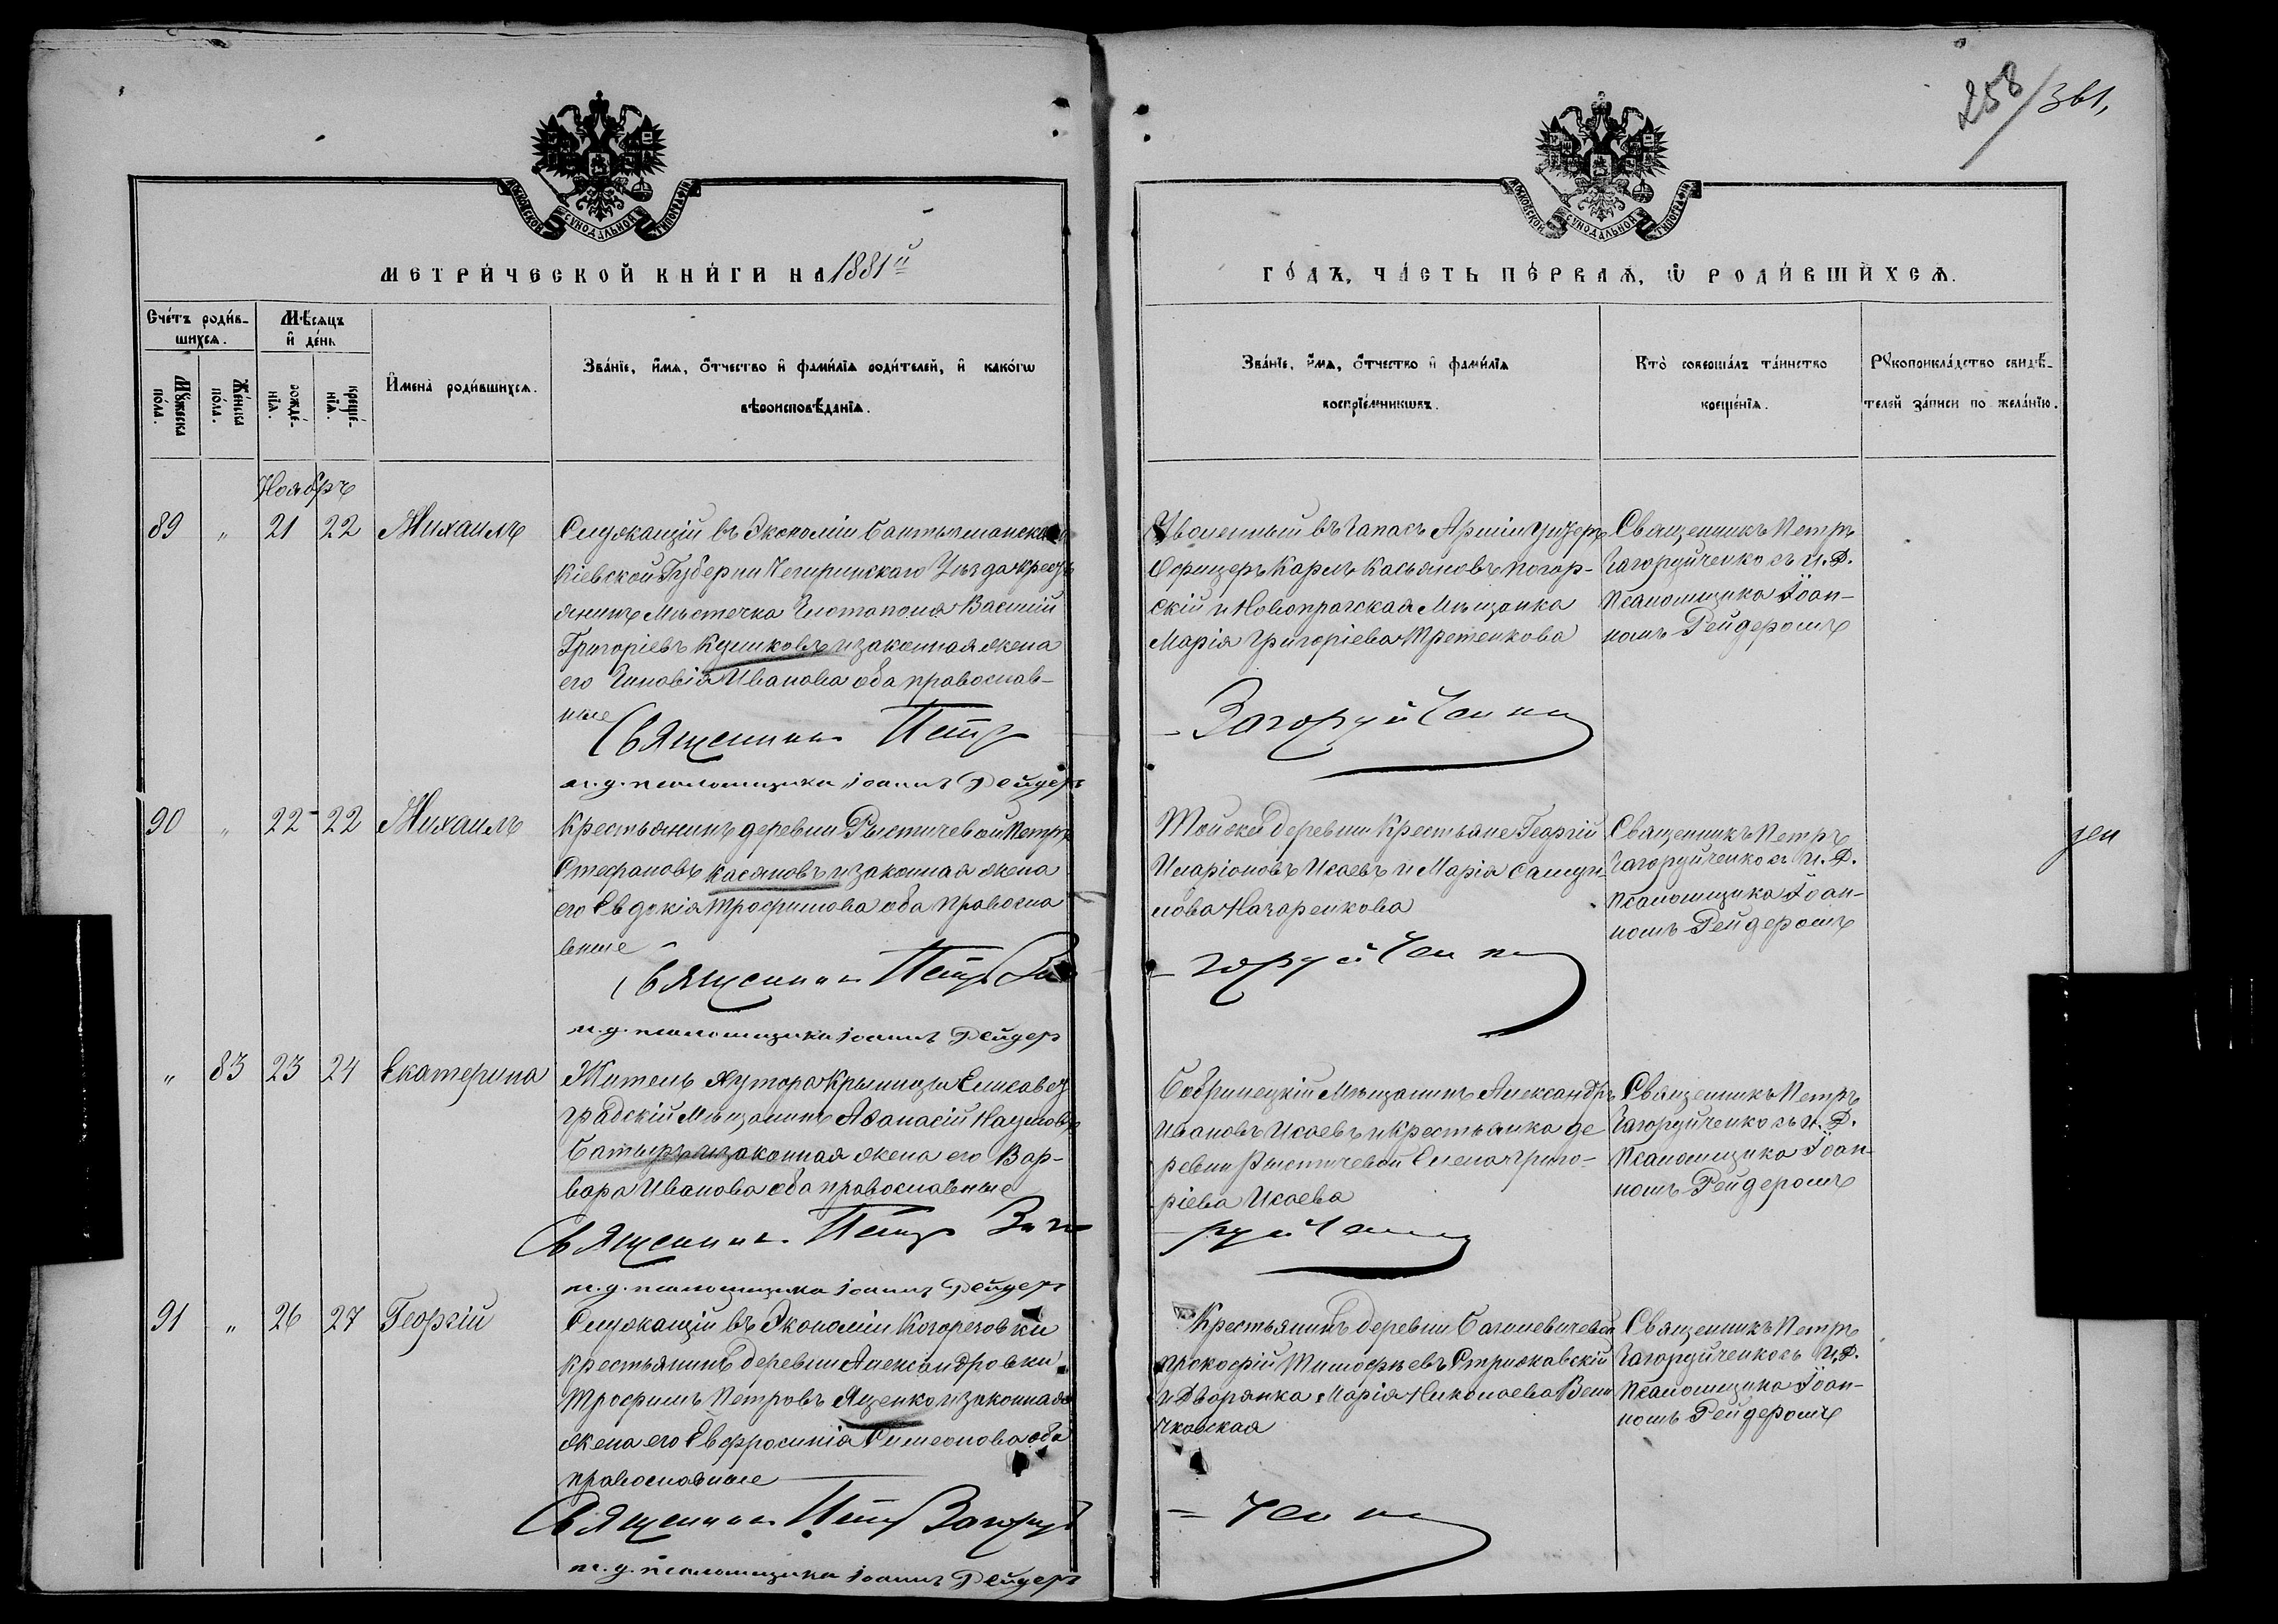 258/361,
МОСКОВСКОЙ СѴНОДАЛЬНОЙ ТИПОГРАФІИ
МОСКОВСКОЙ СѴНОДАЛЬНОЙ ТИПОГРАФІИ
МЕТРИ́ЧЕСКОЙ КНИ́ГИ НА 1881й
ГО́ДЪ, ЧА́СТЬ ПЕ́РВАЯ, Ѡ҆ РОДИ́ВШИХСЯ.
Сче́тъ роди́в-
шихся.
Мѣ́сяцъ
и҆ де́нь
Мꙋ́жеска
по́ла.
Же́нска
по́ла.
рожде́-
нїя.
креще́-
нїя.
И҆мена̀ роди́вшихся.
Зва́нїе, и҆́мя, о҆́тчество и҆ фами́лїя роди́телей, и҆ како́гѡ
вѣроисповѣ́данїя.
Зва́нїе, и҆́мя, о҆́тчество и҆ фами́лїя
воспрїе́мникѡвъ.
Кто̀ соверша́лъ та́инство
креще́нїя.
Рꙋкоприкла́дство свидѣ́-
телей за́писи по жела́нїю.
Ноябрь
89 " 21 22 Михаилъ
Служащій въ Экономіи
Кіевской Губерніи Чегиринскаго Уѣзда крестъ
янинъ Мѣстечка Златополя Василій
Григоріевъ Куликовъ и законная жена
его Зиновія Иванова оба православ-
ные
Священникъ Петръ
и.д. псаломщика Іоаннъ Рейдеръ
Уволенный въ Запасъ Арміи Унтеръ
Офицеръ Карлъ Касьяновъ Погор-
скій и Новопражская Мѣщанка
Марія Григоріева
Загоруйченко
Священникъ Петръ
Загоруйченко съ И.Д.
Псаломщика Іоан-
номъ Рейдеромъ
90 " 22 22 Михаилъ
Крестьянинъ деревни Рыстичевой Петръ
Стефановъ Касяновъ и законная жена
его Евдокія Трофимова оба Правосла
вные
Священникъ Петръ За
и.д. псаломщика Іоаннъ Рейдеръ
Той же деревни Крестьяне Георгій
Иларіоновъ Исаевъ и Марія Самуи
лова Назаренкова
горуйченко
Священникъ Петръ
Загоруйченко съ И.Д.
Псаломщика Іоан-
номъ Рейдеромъ
ден
" 83 23 24 Екатерина
Житель Хутора Криницы Елисавет
градскій Мѣщанинъ Аѳанасій Наумовъ
Батыръ и законная жена его Вар-
вара Иванова оба православные
Священникъ Петръ Заго
и.д. псаломщика Іоаннъ Рейдеръ
Бобринецкій Мѣщанинъ Александръ
Ивановъ Исаевъ и Крестьянка де
ревни Рыстичевой Елена Григо-
ріева Исаева
руйченко
Священникъ Петръ
Загоруйченко съ И.Д.
Псаломщика Іоан-
номъ Рейдеромъ
91 " 26 27 Георгій
Служащій въ Экономіи
крестьянинъ деревни Александровки
Трофимъ Петровъ Яценко и законная
жена его Евфросинія Симеонова оба
православные
Священникъ Петръ Загоруй
и.д. псаломщика Іоаннъ Рейдеръ
Крестьянинъ деревни
Прокофій Тимофѣевъ Стрижавскій
и Дворянка Марія Николаева Вели
чковская
ченко
Священникъ Петръ
Загоруйченко съ И.Д.
Псаломщика Іоан-
номъ Рейдеромъ